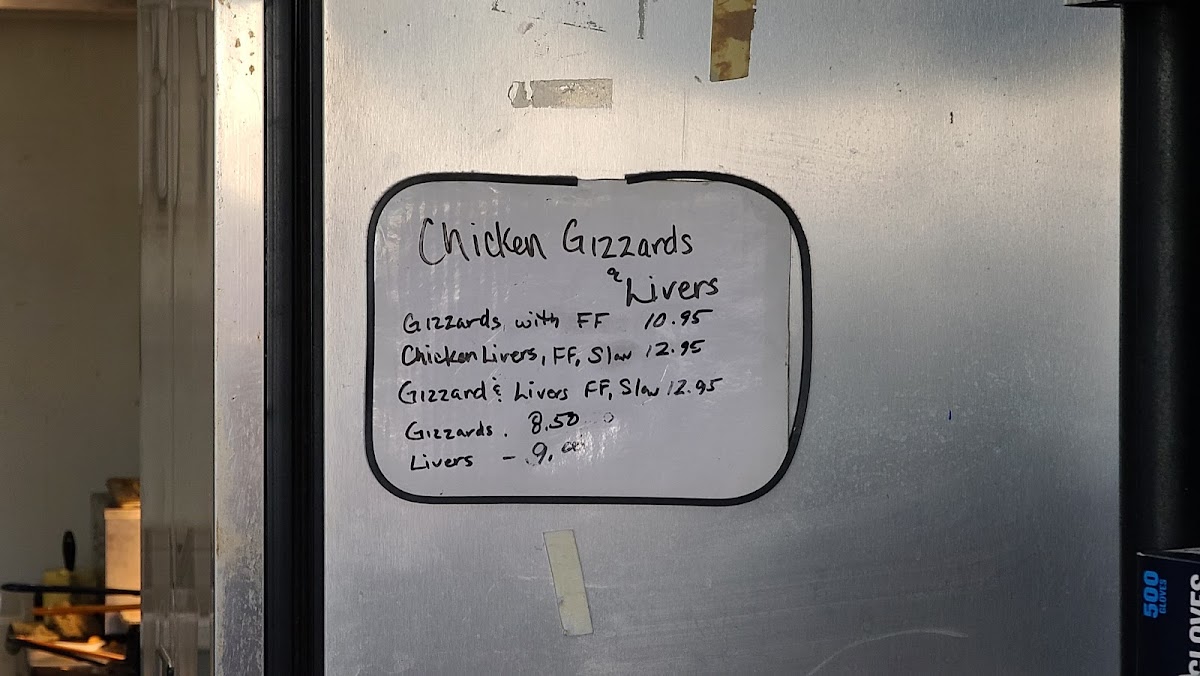 Chicken Gizzards
& Livers
Gizzards with FF 10.95
Chicken Livers, FF, Slaw 12.95
Gizzard & Livers FF, Slaw 12.95
Gizzards. 8.50
Livers - 9.00
500
GLOVES
GLOVES